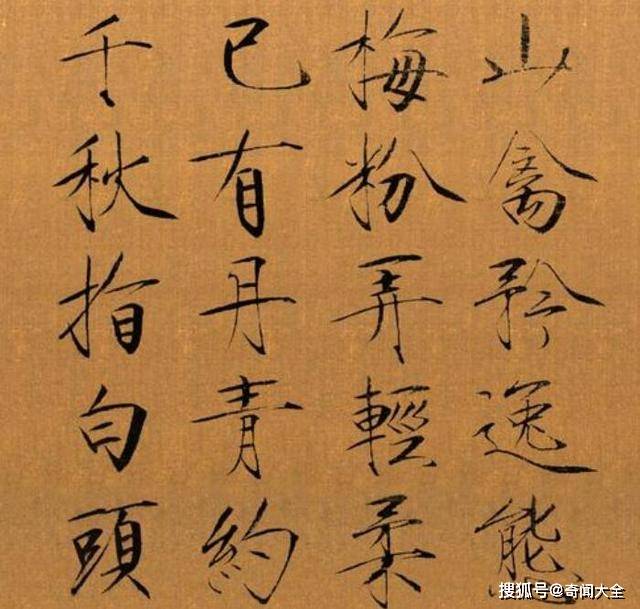 山禽矜逸態
梅粉弄輕柔
已有丹青約
千秋指白頭
搜狐号@奇闻大全